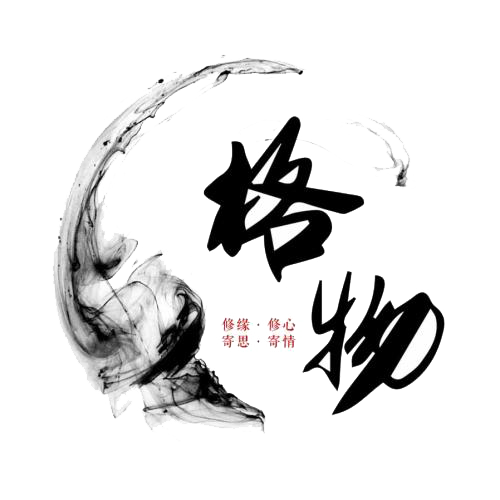 格物
修缘·修心
寄思·寄情